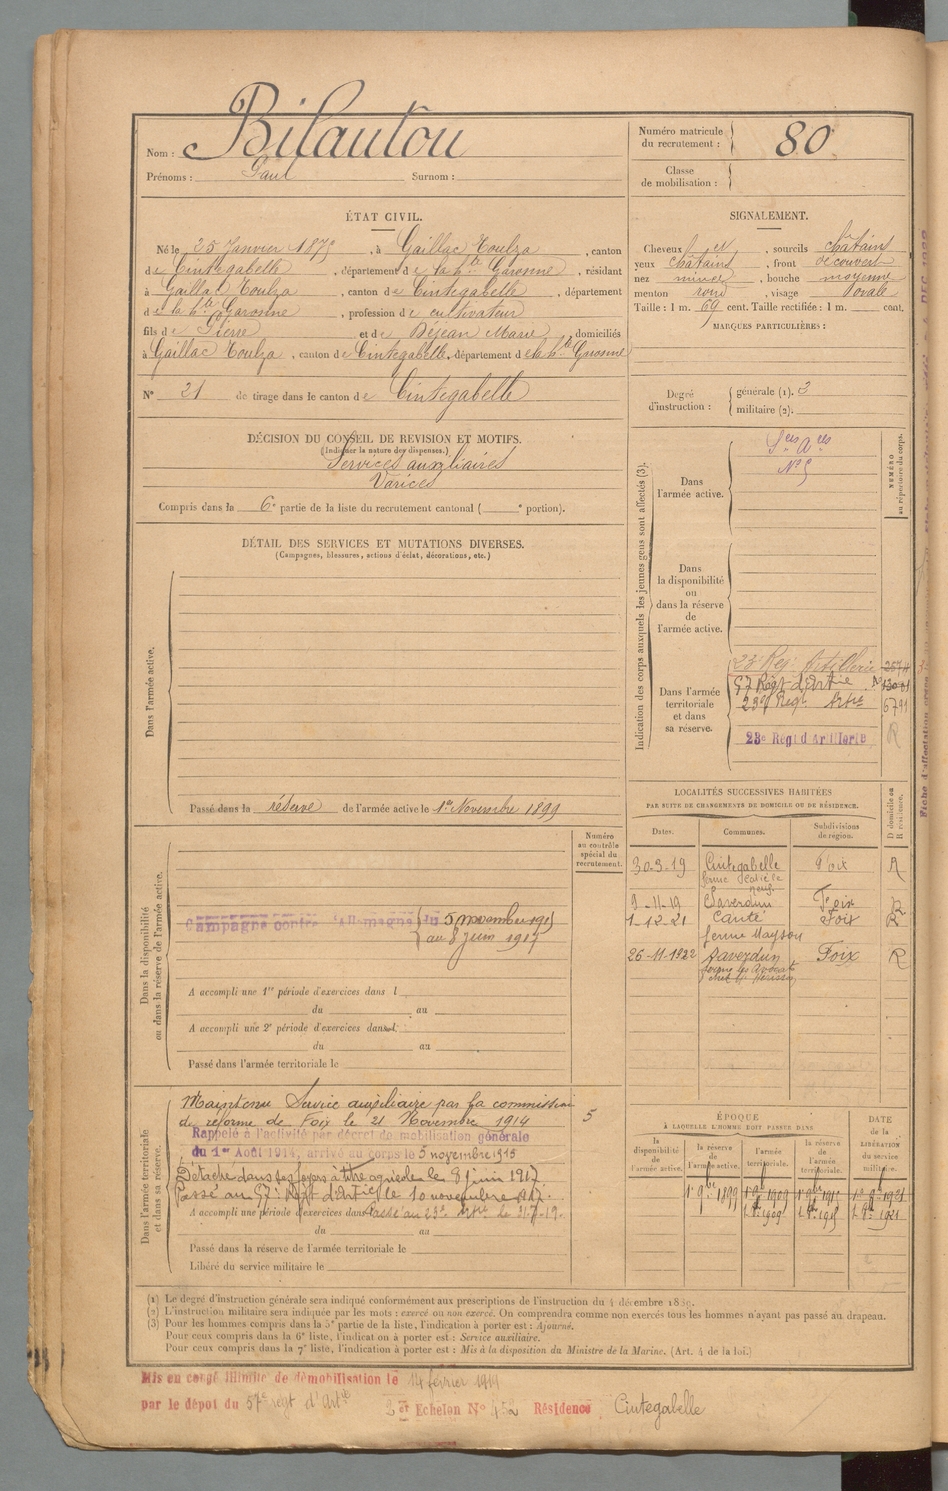 Nom : Bilautou
Prénoms : Paul Surnom :
Numéro matricule du recrutement : 80
Classe de mobilisation :
ÉTAT CIVIL.
Né le 25 Janvier 1875, à Gaillac Toulza, canton
de Cintegabelle, département de la hte Garonne, résidant
à Gaillac Toulza, canton de Cintegabelle, département
de la hte Garonne, profession de cultivateur
fils de Pierre et de Déjean Marie, domiciliés
à Gaillac Toulza, canton de Cintegabelle, département de la hte Garonne
N° 21 de tirage dans le canton de Cintegabelle
SIGNALEMENT.
Cheveux, sourcils châtains
yeux châtains, front découvert
nez, bouche moyenne
menton rond, visage ovale
Taille : 1 m. 69 cent. Taille rectifiée : 1 m. cent.
MARQUES PARTICULIÈRES :
Degré d'instruction : générale (1). 3
militaire (2).
DÉCISION DU CONSEIL DE REVISION ET MOTIFS.
(Indiquer la nature des dispenses.)
Services auxiliaires
Varices
Compris dans la 6e partie de la liste du recrutement cantonal ( e portion).
DÉTAIL DES SERVICES ET MUTATIONS DIVERSES.
(Campagnes, blessures, actions d'éclat, décorations, etc.)
Dans l'armée active.
Passé dans la réserve de l'armée active le 1er Novembre 1899
Indication des corps auxquels les jeunes gens sont affectés (3).
NUMÉRO au répertoire du corps.
Dans l'armée active.
Sces Ares
N° 5
Dans la disponibilité ou dans la réserve de l'armée active.
Dans l'armée territoriale et dans sa réserve.
23e Rég. Artillerie
57 Régt d'Artie
23e Régt Artie 6791
23e Régt d'Artillerie R
LOCALITÉS SUCCESSIVES HABITÉES
PAR SUITE DE CHANGEMENTS DE DOMICILE OU DE RÉSIDENCE.
Dates. Communes. Subdivisions de région. D domicile ou R résidence.
30.3.19 Cintegabelle Foix
9-11-19 Saverdun Foix R
1-12-21 Canté Foix R
ferme Mayson
26-11-1922 Saverdun Foix R
Numéro au contrôle spécial du recrutement.
Dans la disponibilité ou dans la réserve de l'armée active.
Campagne contre l'Allemagne du 5 novembre 1915
au 8 Juin 1917
A accompli une 1re période d'exercices dans l
du au
A accompli une 2e période d'exercices dans l
du au
Passé dans l'armée territoriale le
Dans l'armée territoriale et dans sa réserve.
Maintenu Service auxiliaire par la commission 5
de réforme de Foix le 21 Novembre 1914
Rappelé à l'activité par décret de mobilisation générale
du 1er Août 1914, arrivé au corps le 5 novembre 1915
Détaché dans ses foyers à titre agricole le 8 juin 1917.
Passé au 57e Régt d'Artie le 10 novembre 1917.
A accompli une période d'exercices dans Passé au 23e Artie le 31-7-19.
du au
Passé dans la réserve de l'armée territoriale le
Libéré du service militaire le
ÉPOQUE
À LAQUELLE L'HOMME DOIT PASSER DANS
la disponibilité de l'armée active. la réserve de l'armée active. l'armée territoriale. la réserve de l'armée territoriale.
DATE de la LIBÉRATION du service militaire.
1er 9bre 1899 1er 9bre 1909 1er 9bre 1915 1er 9bre 1921
(1) Le degré d'instruction générale sera indiqué conformément aux prescriptions de l'instruction du 4 décembre 1889.
(2) L'instruction militaire sera indiquée par les mots : exercé ou non exercé. On comprendra comme non exercés tous les hommes n'ayant pas passé au drapeau.
(3) Pour les hommes compris dans la 5e partie de la liste, l'indication à porter est : Ajourné.
Pour ceux compris dans la 6e liste, l'indication à porter est : Service auxiliaire.
Pour ceux compris dans la 7e liste, l'indication à porter est : Mis à la disposition du Ministre de la Marine. (Art. 4 de la loi.)
Mis en congé illimité de démobilisation le 14 février 1919
par le dépôt du 57e régt d'Artie 2e Echelon N° 452 Résidence Cintegabelle